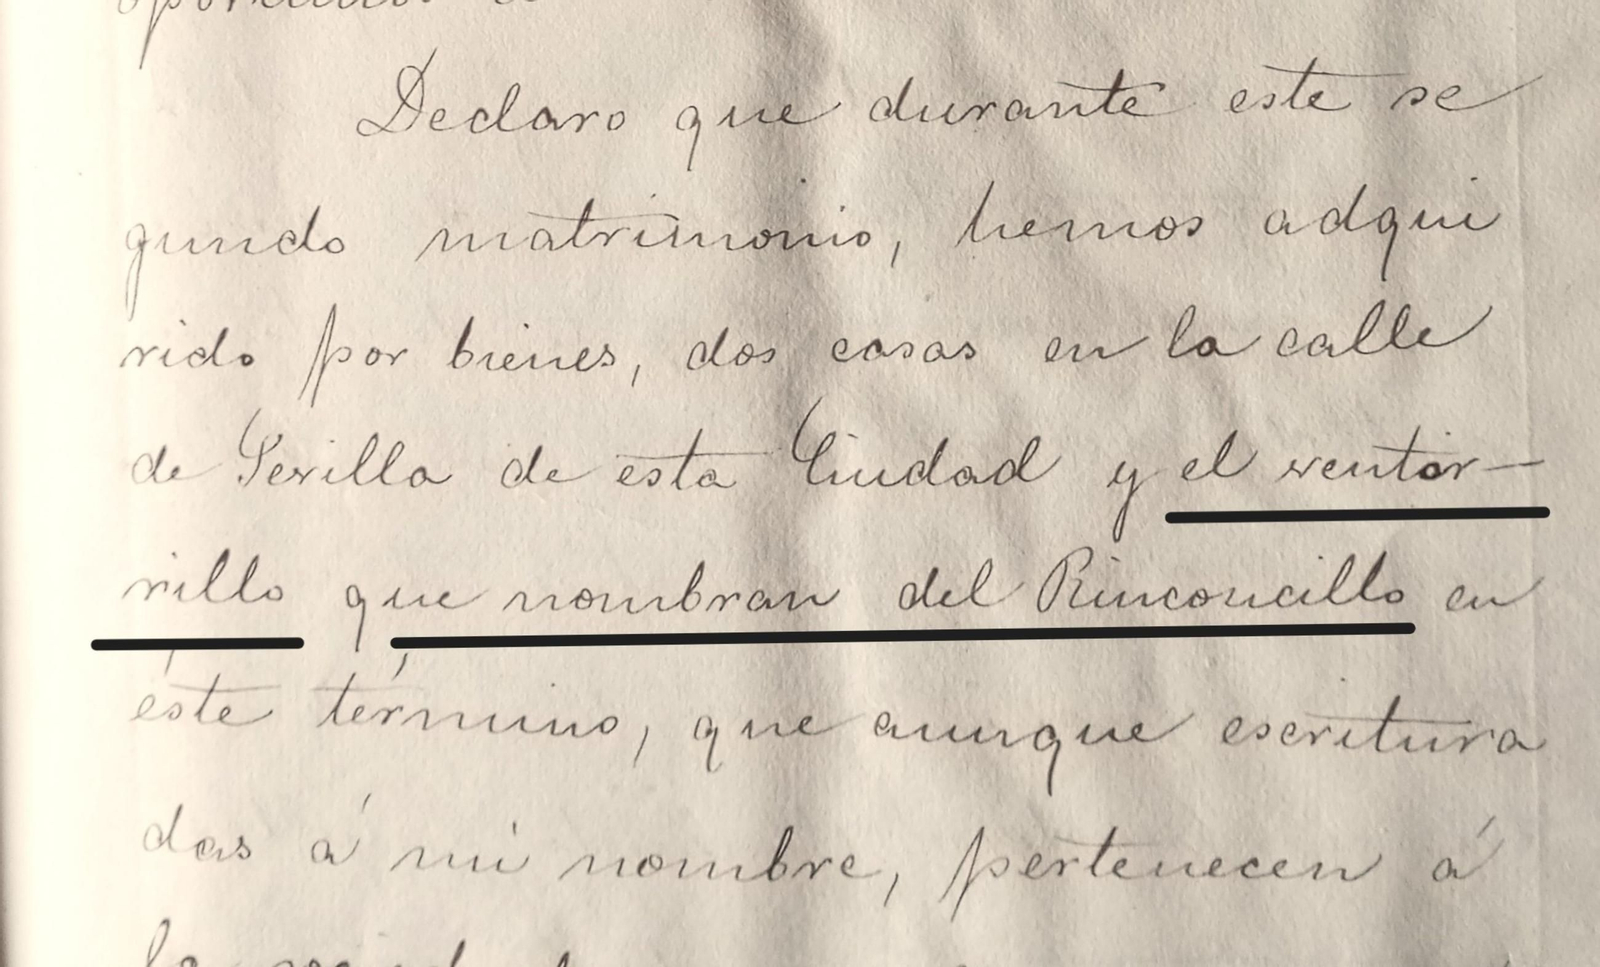 Declaro que durante este se
gundo matrimonio, hemos adqui
rido por bienes, dos casas en la calle
de Sevilla de esta Ciudad y el ventor—
rillo que nombran del Rinconcillo en
éste término, que aunque escritura
das á mi nombre, pertenecen á